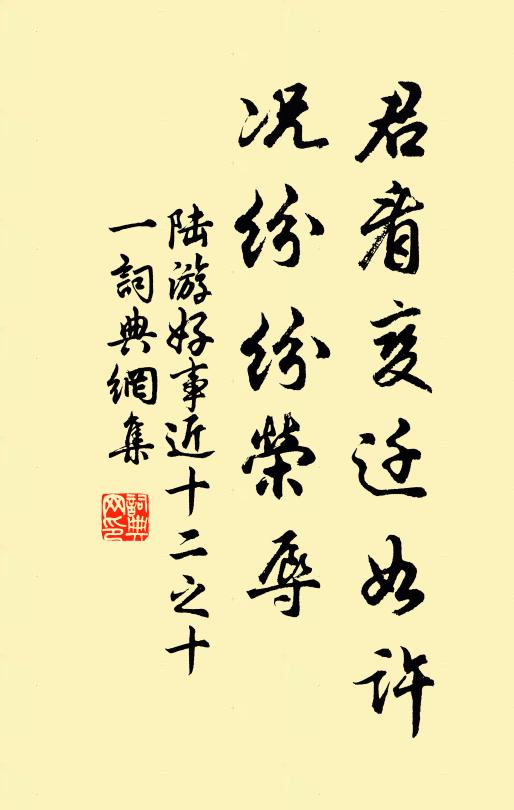 君看变迁如许
况纷纷荣辱
陆游好事近十二之十
一詞典網集
詞典
网印